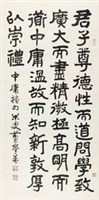 君子尊德性而道問學致
廣大而盡精微極高明而
道中庸溫故而知新敦厚
以崇禮
中庸